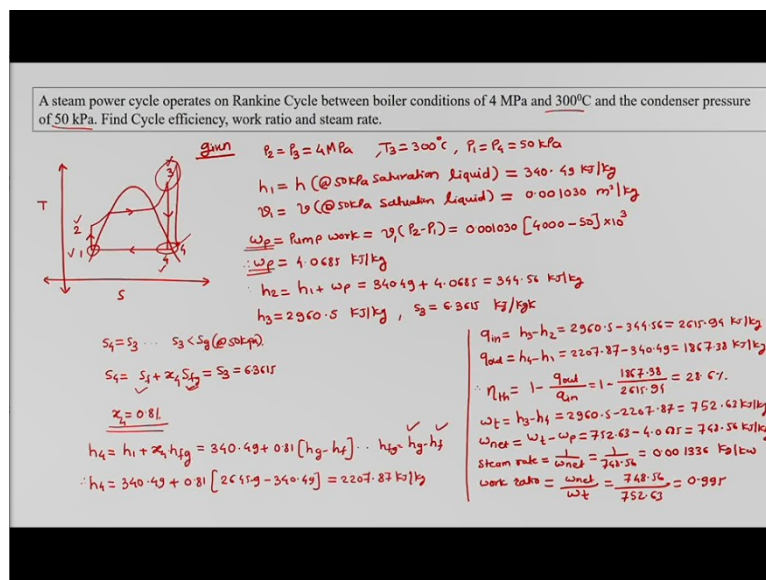 A steam power cycle operates on Rankine Cycle between boiler conditions of 4 MPa and 300⁰C and the condenser pressure
of 50 kPa. Find Cycle efficiency, work ratio and steam rate.
given P₂=P₃=4MPa , T₃=300°C , P₁=P₄=50kPa
h₁ = h (@50kPa saturation liquid) = 340.49 kJ/kg
v₁ = v (@50kPa saturation liquid) = 0.001030 m³/kg
wp = Pump work = v₁(P₂-P₁) = 0.001030 [4000-50]×10³
∴ wp = 4.0685 kJ/kg
∴ h₂ = h₁ + wp = 340.49 + 4.0685 = 344.56 kJ/kg
h₃ = 2960.5 kJ/kg , S₃ = 6.3615 kJ/kgk
T
✓2
✓1
3
4
4
S
S₄=S₃ ... S₃<Sg(@50kpa).
S₄ = Sf + x₄Sfg = S₃ = 6.3615
x₄ = 0.81
h₄ = h₁ + x₄hfg = 340.49 + 0.81 [hg-hf] .. hfg = hg-hf
∴ h₄ = 340.49 + 0.81 [2645.9 - 340.49] = 2207.87 kJ/kg
qin = h₃-h₂ = 2960.5-344.56 = 2615.94 kJ/kg
qout = h₄-h₁ = 2207.87-340.49 = 1867.38 kJ/kg
∴ ηth = 1 - qout/qin = 1 - 1867.38/2615.94 = 28.6%
wt = h₃-h₄ = 2960.5-2207.87 = 752.63 kJ/kg
wnet = wt-wp = 752.63-4.0685 = 748.56 kJ/kg
Steam rate = 1/wnet = 1/748.56 = 0.001336 kg/kw
work ratio = wnet/wt = 748.56/752.63 = 0.995